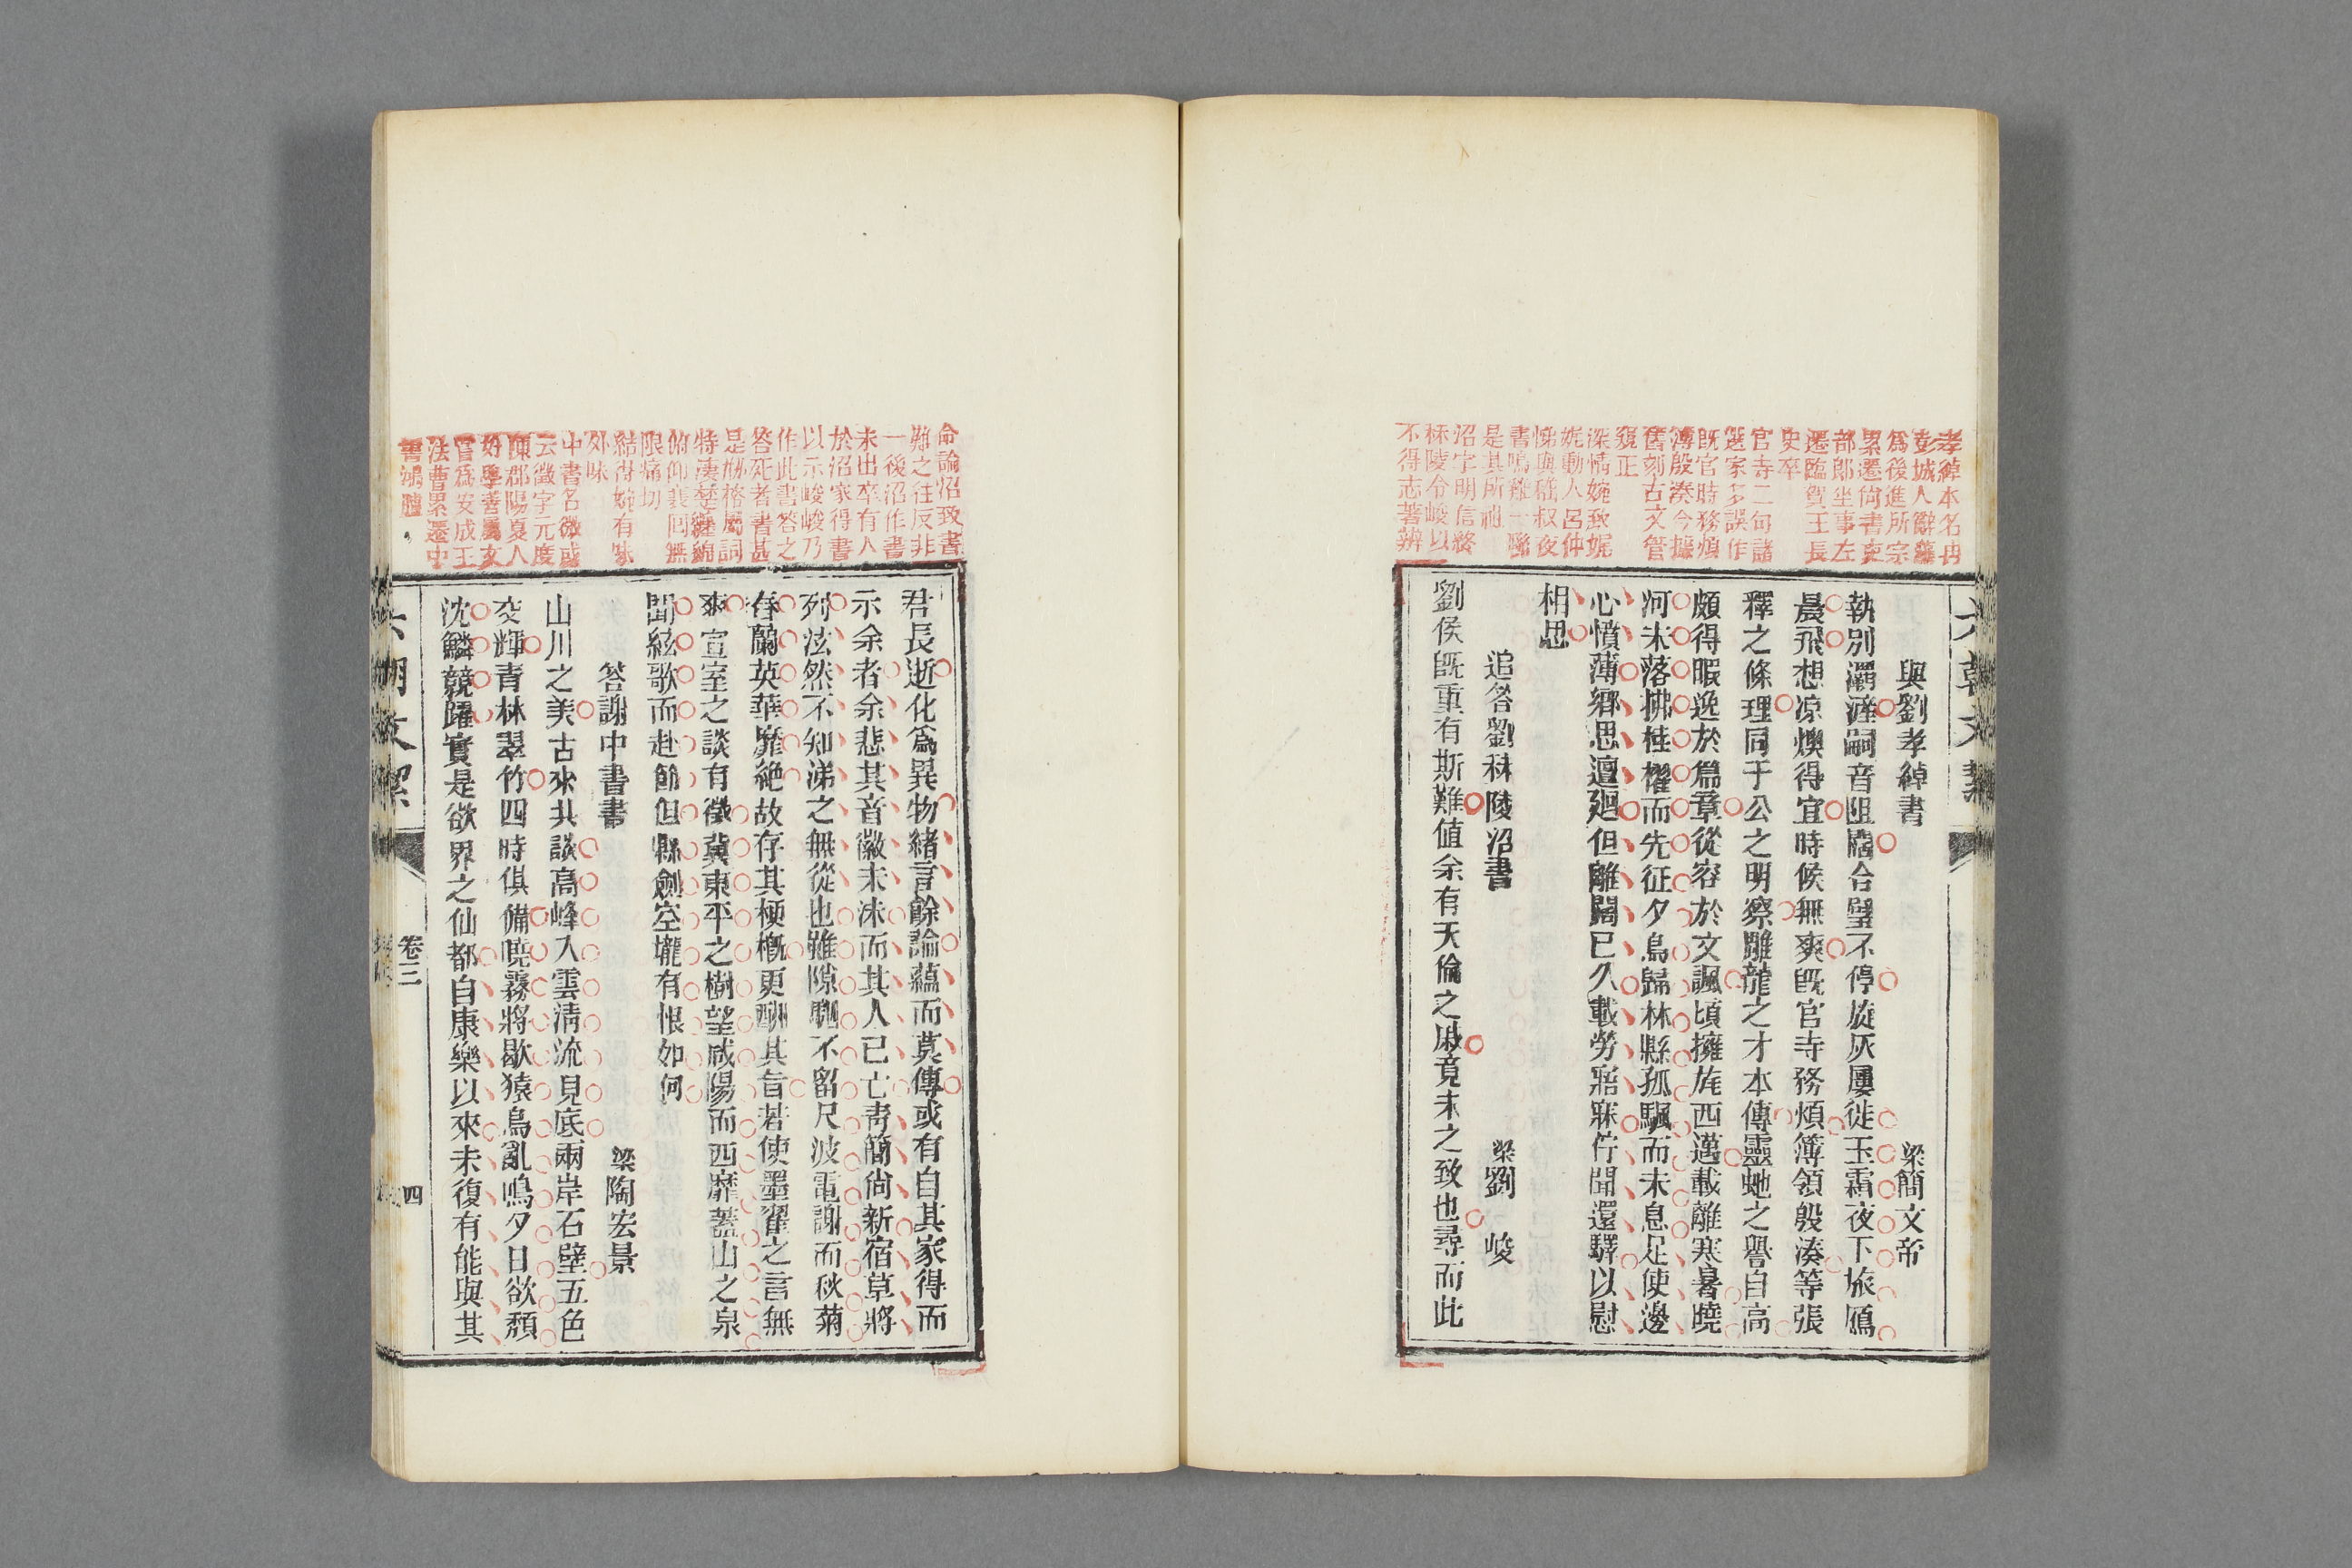 孝綽本名冉
彭城人辭藻
爲後進所宗
累遷尚書吏
部郎坐事左
遷臨賀王長
史卒
官寺二句諸
選家多誤作
既官時務煩
簿殷湊今據
舊刻古文管
窺正
深情婉致娓
娓動人呂仲
悌與嵇叔夜
書鳴雞一聯
是其所祖
沼字明信終
秣陵令峻以
不得志著辨
與劉孝綽書 梁簡文帝
執別灞滻嗣音阻闊合璧不停旋灰屢徙玉霜夜下旅鴈
晨飛想涼燠得宜時候無爽既官寺務煩簿領殷湊等張
釋之條理同于公之明察雕龍之才本傳靈虵之譽自高
頗得暇逸於篇章從容於文諷頃擁旄西邁載離寒暑曉
河未落拂桂櫂而先征夕鳥歸林縣孤颿而未息足使邊
心憤薄鄉思邅廻但離闊已久載勞寤寐佇聞還驛以慰
相思
追答劉秣陵沼書 梁劉 峻
劉侯既重有斯難値余有天倫之戚竟未之致也尋而此
命論沼致書
難之往反非
一後沼作書
未出卒有人
於沼家得書
以示峻峻乃
作此書答之
答死者書甚
是觴㮄屬詞
特淒楚纏綿
俯仰裵囘無
限痛切
結得婉有味
外味
中書名微或
云徵字元度
陳郡陽夏人
好學善屬文
官爲安成王
法曹累遷中
書鴻臚
君長逝化爲異物緒言餘論蘊而莫傳或有自其家得而
示余者余悲其音徽未沬而其人已亡靑簡尚新宿草將
列泫然不知涕之無從也雖隙駟不留尺波電謝而秋菊
春蘭英華靡絶故存其梗槪更酬其旨若使墨翟之言無
爽宣室之談有徵冀東平之樹望咸陽而西靡蓋山之泉
聞絃歌而赴節但縣劍空壠有恨如何
答謝中書書 梁陶宏景
山川之美古來共談高峰入雲淸流見底兩岸石壁五色
交輝青林翠竹四時俱備曉霧將歇猿鳥亂鳴夕日欲頹
沈鱗競躍實是欲界之仙都自康樂以來未復有能與其
六朝文絜 卷三 四